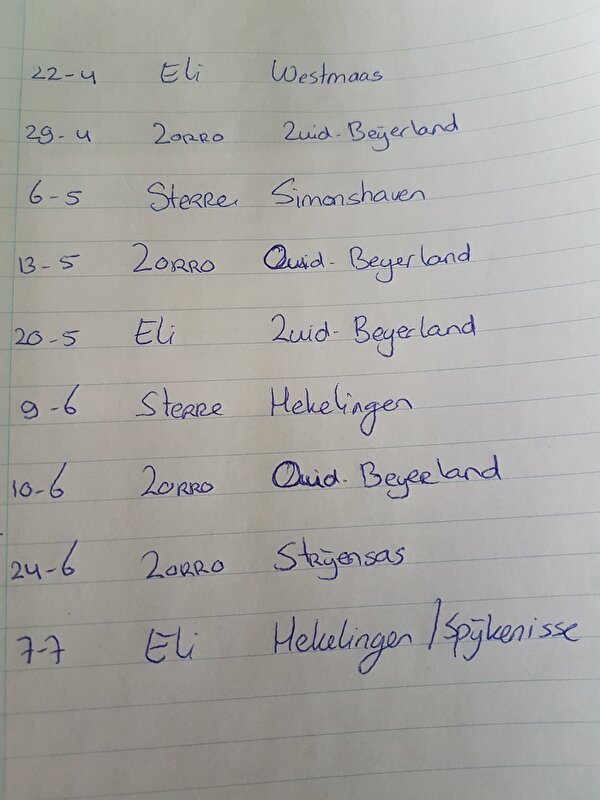 22-4 Eli Westmaas
29-4 Zorro Zuid-Beijerland
6-5 Sterre Simonshaven
13-5 Zorro Oud-Beyerland
20-5 Eli Zuid-Beyerland
9-6 Sterre Hekelingen
10-6 Zorro Oud-Beyerland
24-6 Zorro Strijensas
7-7 Eli Hekelingen / Spijkenisse